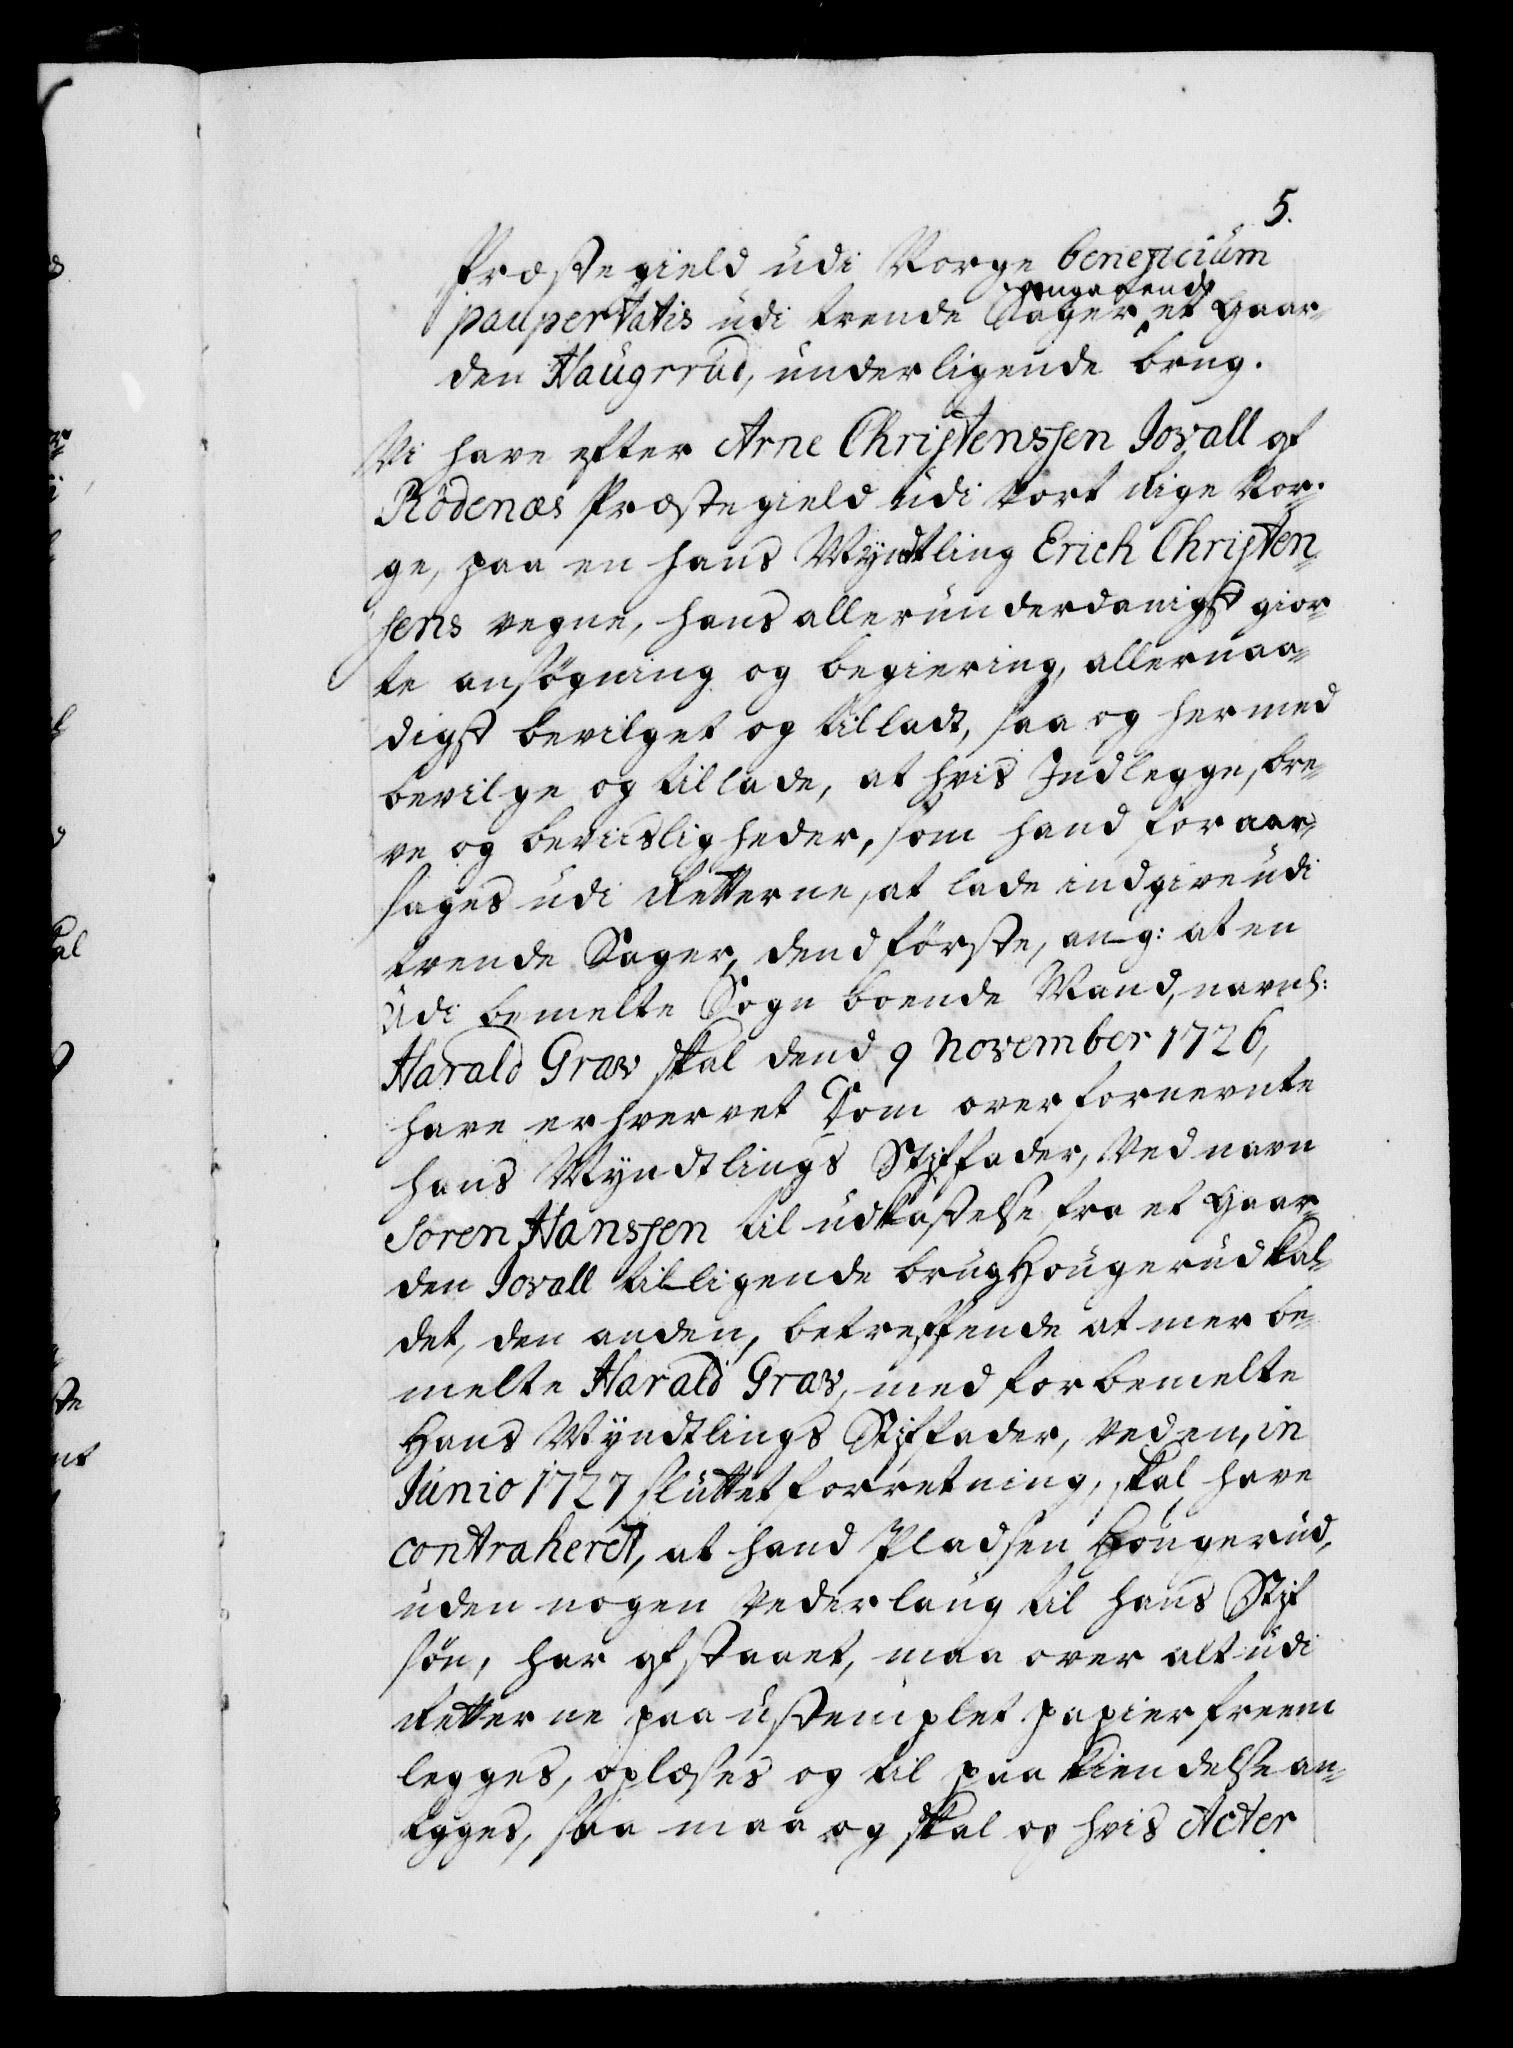 5.
Præstegield udi Norge beneficium
paupertatis udi trende Sager angaaende et Gaar-
den Haugrrud, underligende brug.
Vi have efter Arne Christenssen Jovall af
Rödenæs Præstegield udi Vort Rige Nor-
ge, paa en hans Myndtling Erich Christen-
sens vegne, hans allerunderdanigst gior-
te ansögning og begiering, allernaa-
digst bevilget og tilladt, saa og hermed
bevilge og tillade, at hvis Indlegge, bre-
ve og beviisligheder, som hand foraar-
sages udi Retterne, at lade indgive udi
trende Sager, dend förste, ang: at en
Udi bemelte Sogn boende Mand, navnl:
Harald Grav skal dend 9 November 1726,
have erhvervet Dom over fornevnte
hans Myndtlings Stiffader, Ved navn
Soren Hanssen til udkastelse fra et Gaar-
den Jovall tilligende brug Hougerud kal-
det, den anden, betreffende at merbe-
melte Harald Grav, med forbemelte
Hans Myndtlings Stiffader, Ved en, in
Junio 1727 sluttet forretning, skal have
contraheret, at hand Pladsen Hougerud,
uden nogen Vederlaug til hans Stif
sön, har afstaaet, maa over alt udi
Retterne paa ustemplet papier freem
legges, oplæses og til paakiendelse an-
tages, saa maa og skal og hvis Acter